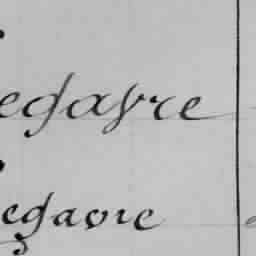 egavre
egavre